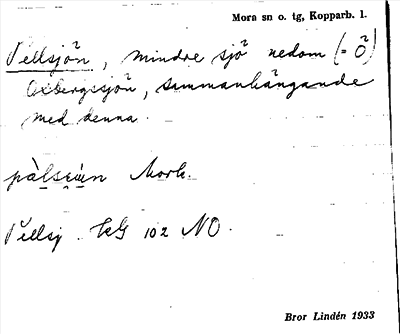 Mora sn o. tg, Kopparb. l.
Pellsjön, mindre sjö nedom (= Ö)
Oxbergssjön, sammanhängande
med denna.
Mork.
Pellsj. KG 102 NO.
Bror Lindén 1933